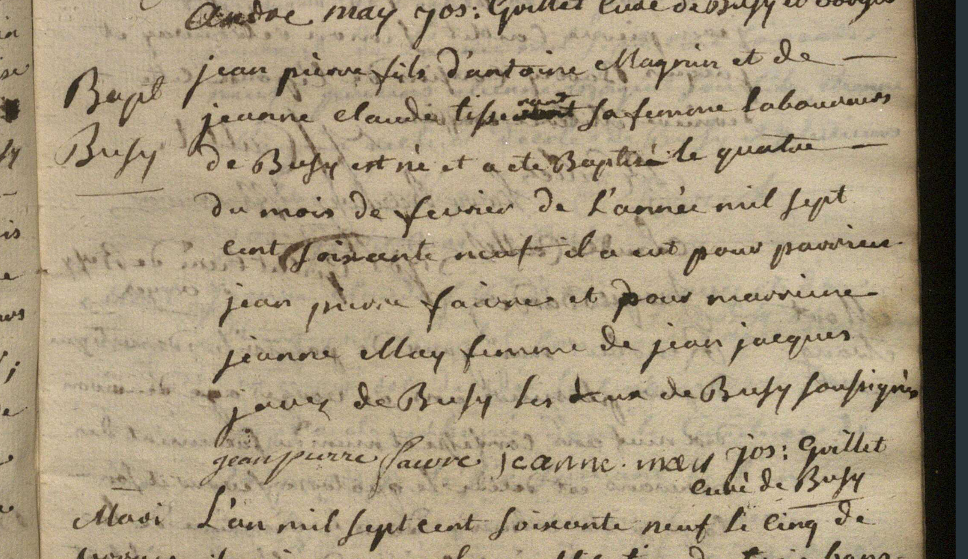 andre may jos: Guillet curé de Busy et vorges
Bapt
Busy
jean pierre fils d'antoine Magnin et de
jeanne claude tisserant sa femme laboureurs
de Busy est né et a eté Baptisé le quatre
du mois de fevrier de L'année mil sept
cent soixante neuf il a eut pour parrein
jean pierre faivre et pour marreine
jeanne May femme de jean jacques
de Busy les deux de Busy soussignés
jean pierre faivre jeanne may jos: Guillet
curé de Busy
L'an mil sept cent soixante neuf le cinq de